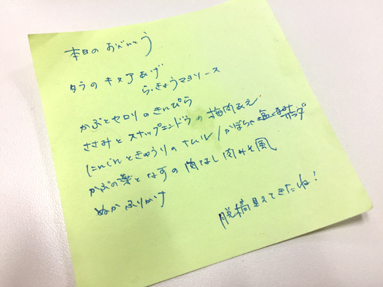 本日のおべんとう
タラのキヌアあげ
らっきょうマヨソース
かぶとセロリのきんぴら
ささみとスナップエンドウの梅肉あえ
にんじんときゅうりのナムル/かぼちゃの塩こぶ
かぶの葉となすの肉なし肉みそ風
ぬかふりかけ
脱稿見えてきたね!